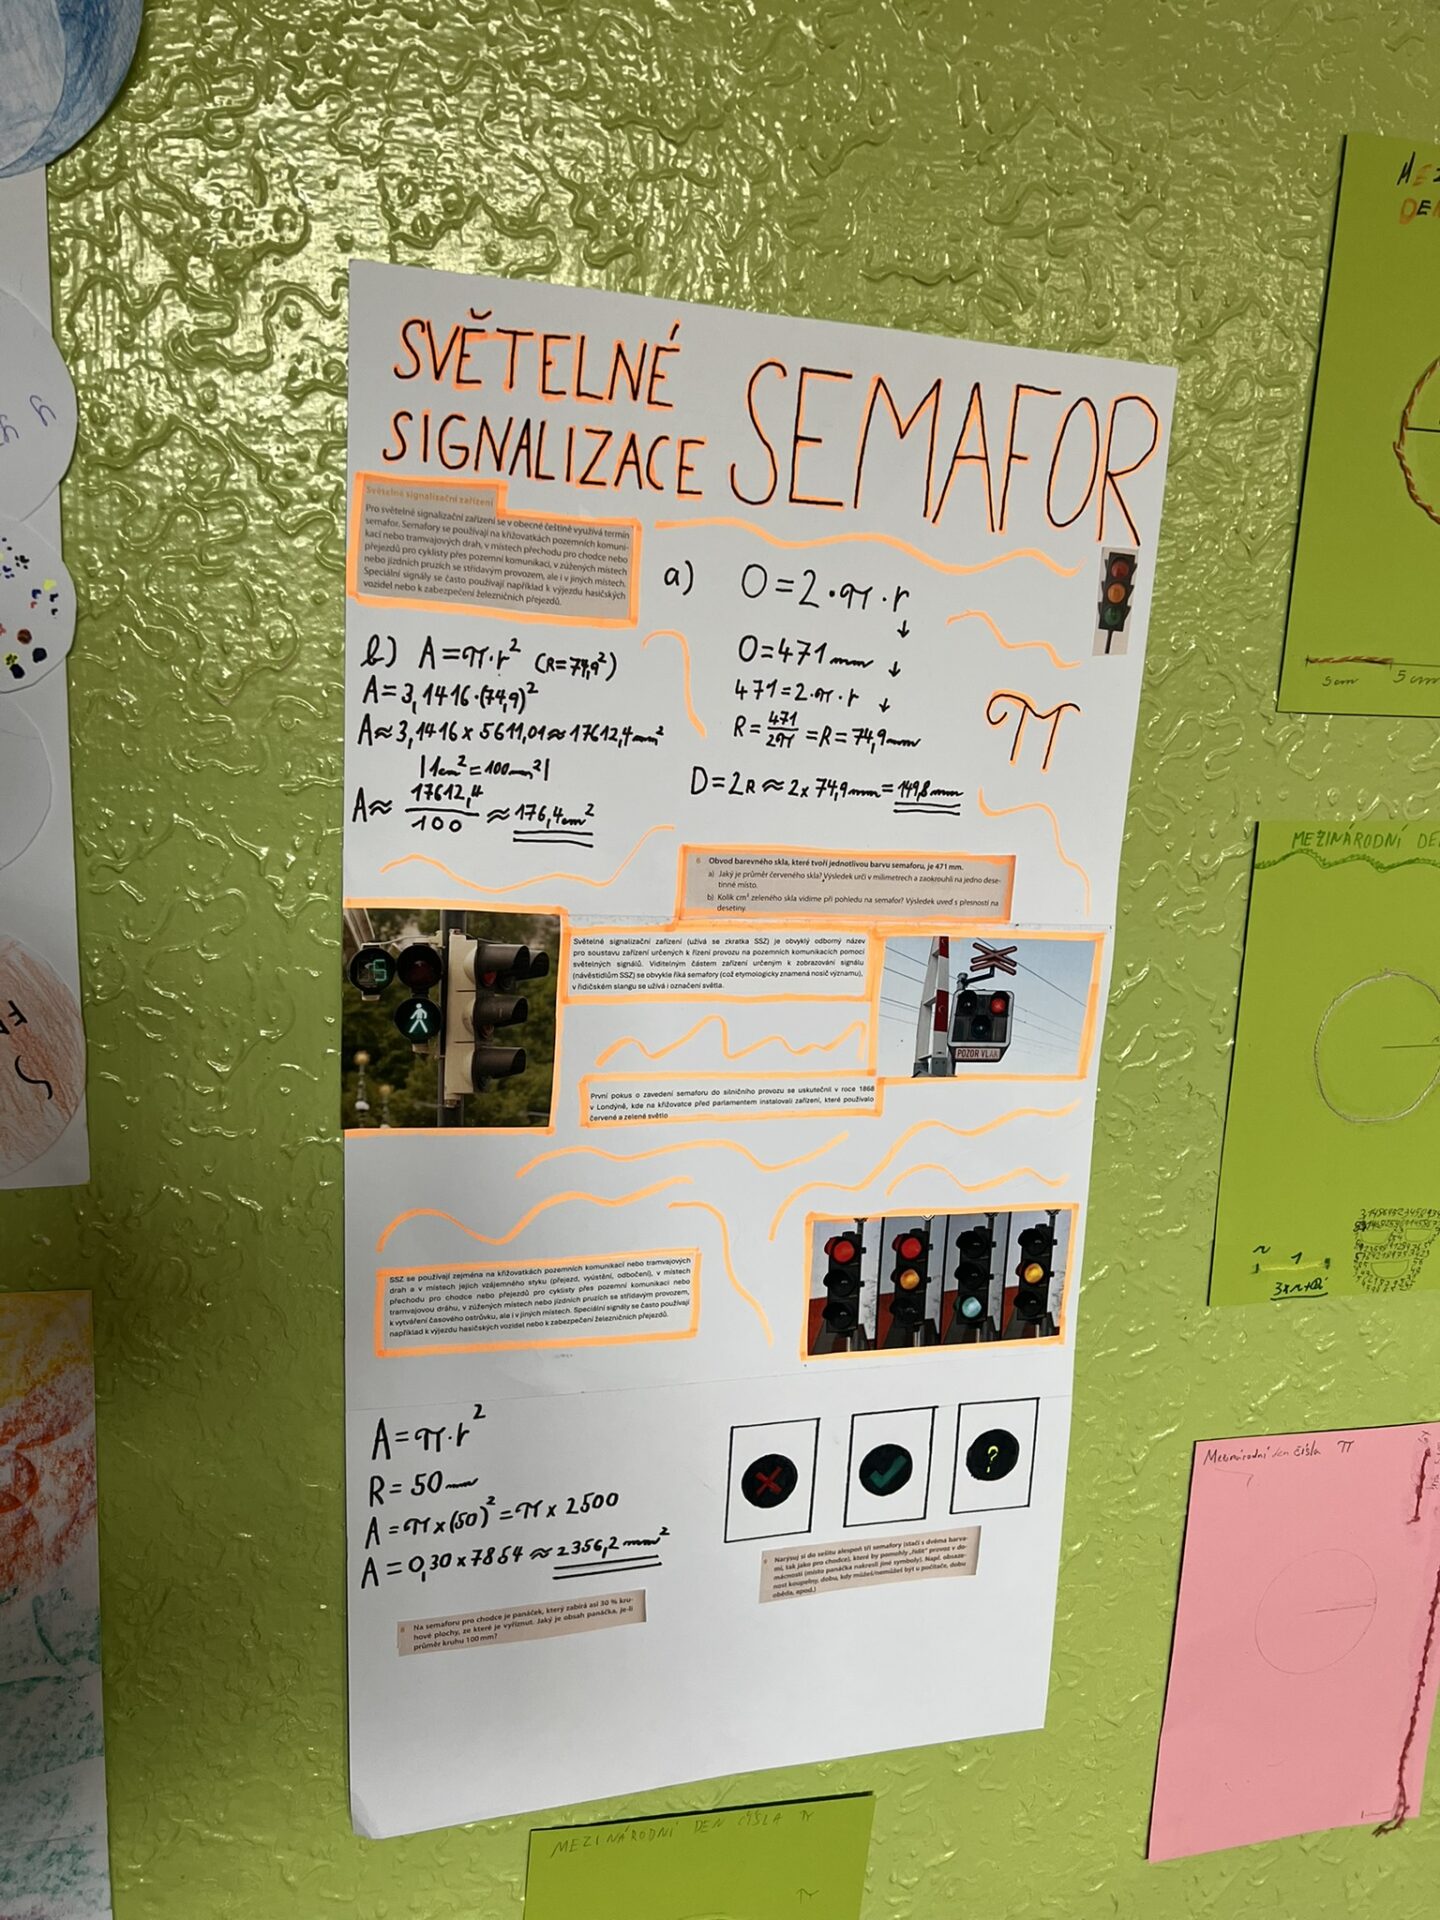 SVĚTELNÉ
SIGNALIZACE
SEMAFOR
Světelné signalizační zařízení
Pro světelné signalizační zařízení se v obecné češtině využívá termín
semafor. Semafory se používají na křižovatkách pozemních komuni-
kací nebo tramvajových drah, v místech přechodu pro chodce nebo
přejezdů pro cyklisty přes pozemní komunikaci, v zúžených místech
nebo jízdních pruzích se střídavým provozem, ale i v jiných místech.
Speciální signály se často používají například k výjezdu hasičských
vozidel nebo k zabezpečení železničních přejezdů.
a) O=2·π·r
↓
O=471mm ↓
471=2·π·r ↓
R=471/2π=R=74,9mm
D=2R≈2x74,9mm=149,8mm
π
b) A=π·r² (R=74,9²)
A=3,1416·(74,9)²
A≈3,1416x5611,01≈17612,4mm²
|1cm²=100mm²|
A≈17612,4/100≈176,4cm²
6 Obvod barevného skla, které tvoří jednotlivou barvu semaforu, je 471 mm.
a) Jaký je průměr červeného skla? Výsledek urči v milimetrech a zaokrouhli na jedno dese-
tinné místo.
b) Kolik cm² zeleného skla vidíme při pohledu na semafor? Výsledek uveď s přesností na
desetiny.
Světelné signalizační zařízení (užívá se zkratka SSZ) je obvyklý odborný název
pro soustavu zařízení určených k řízení provozu na pozemních komunikacích pomocí
světelných signálů. Viditelným částem zařízení určeným k zobrazování signálu
(návěstidlům SSZ) se obvykle říká semafory (což etymologicky znamená nosič významu),
v řidičském slangu se užívá i označení světla.
POZOR VLAK
První pokus o zavedení semaforu do silničního provozu se uskutečnil v roce 1868
v Londýně, kde na křižovatce před parlamentem instalovali zařízení, které používalo
červené a zelené světlo
SSZ se používají zejména na křižovatkách pozemních komunikací nebo tramvajových
drah a v místech jejich vzájemného styku (přejezd, vyústění, odbočení), v místech
přechodu pro chodce nebo přejezdů pro cyklisty přes pozemní komunikaci nebo
tramvajovou dráhu, v zúžených místech nebo jízdních pruzích se střídavým provozem,
k vytváření časového ostrůvku, ale i v jiných místech. Speciální signály se často používají
například k výjezdu hasičských vozidel nebo k zabezpečení železničních přejezdů.
A=π·r²
R=50mm
A=πx(50)²=πx2500
A=0,30x7854≈2356,2mm²
?
8 Na semaforu pro chodce je panáček, který zabírá asi 30 % kru-
hové plochy, ze které je vyříznut. Jaký je obsah panáčka, je-li
průměr kruhu 100 mm?
9 Narýsuj si do sešitu alespoň tři semafory (stačí s dvěma barva-
mi, tak jako pro chodce), které by pomohly „řídit" provoz v do-
mácnosti (místo panáčka nakresli jiné symboly). Např. obsaze-
nost koupelny, dobu, kdy můžeš/nemůžeš být u počítače, dobu
oběda, apod.)
5cm
5cm
MEZINÁRODNÍ DE
Mezinárodní den čísla π
MEZINÁRODNÍ DEN ČÍSLA π